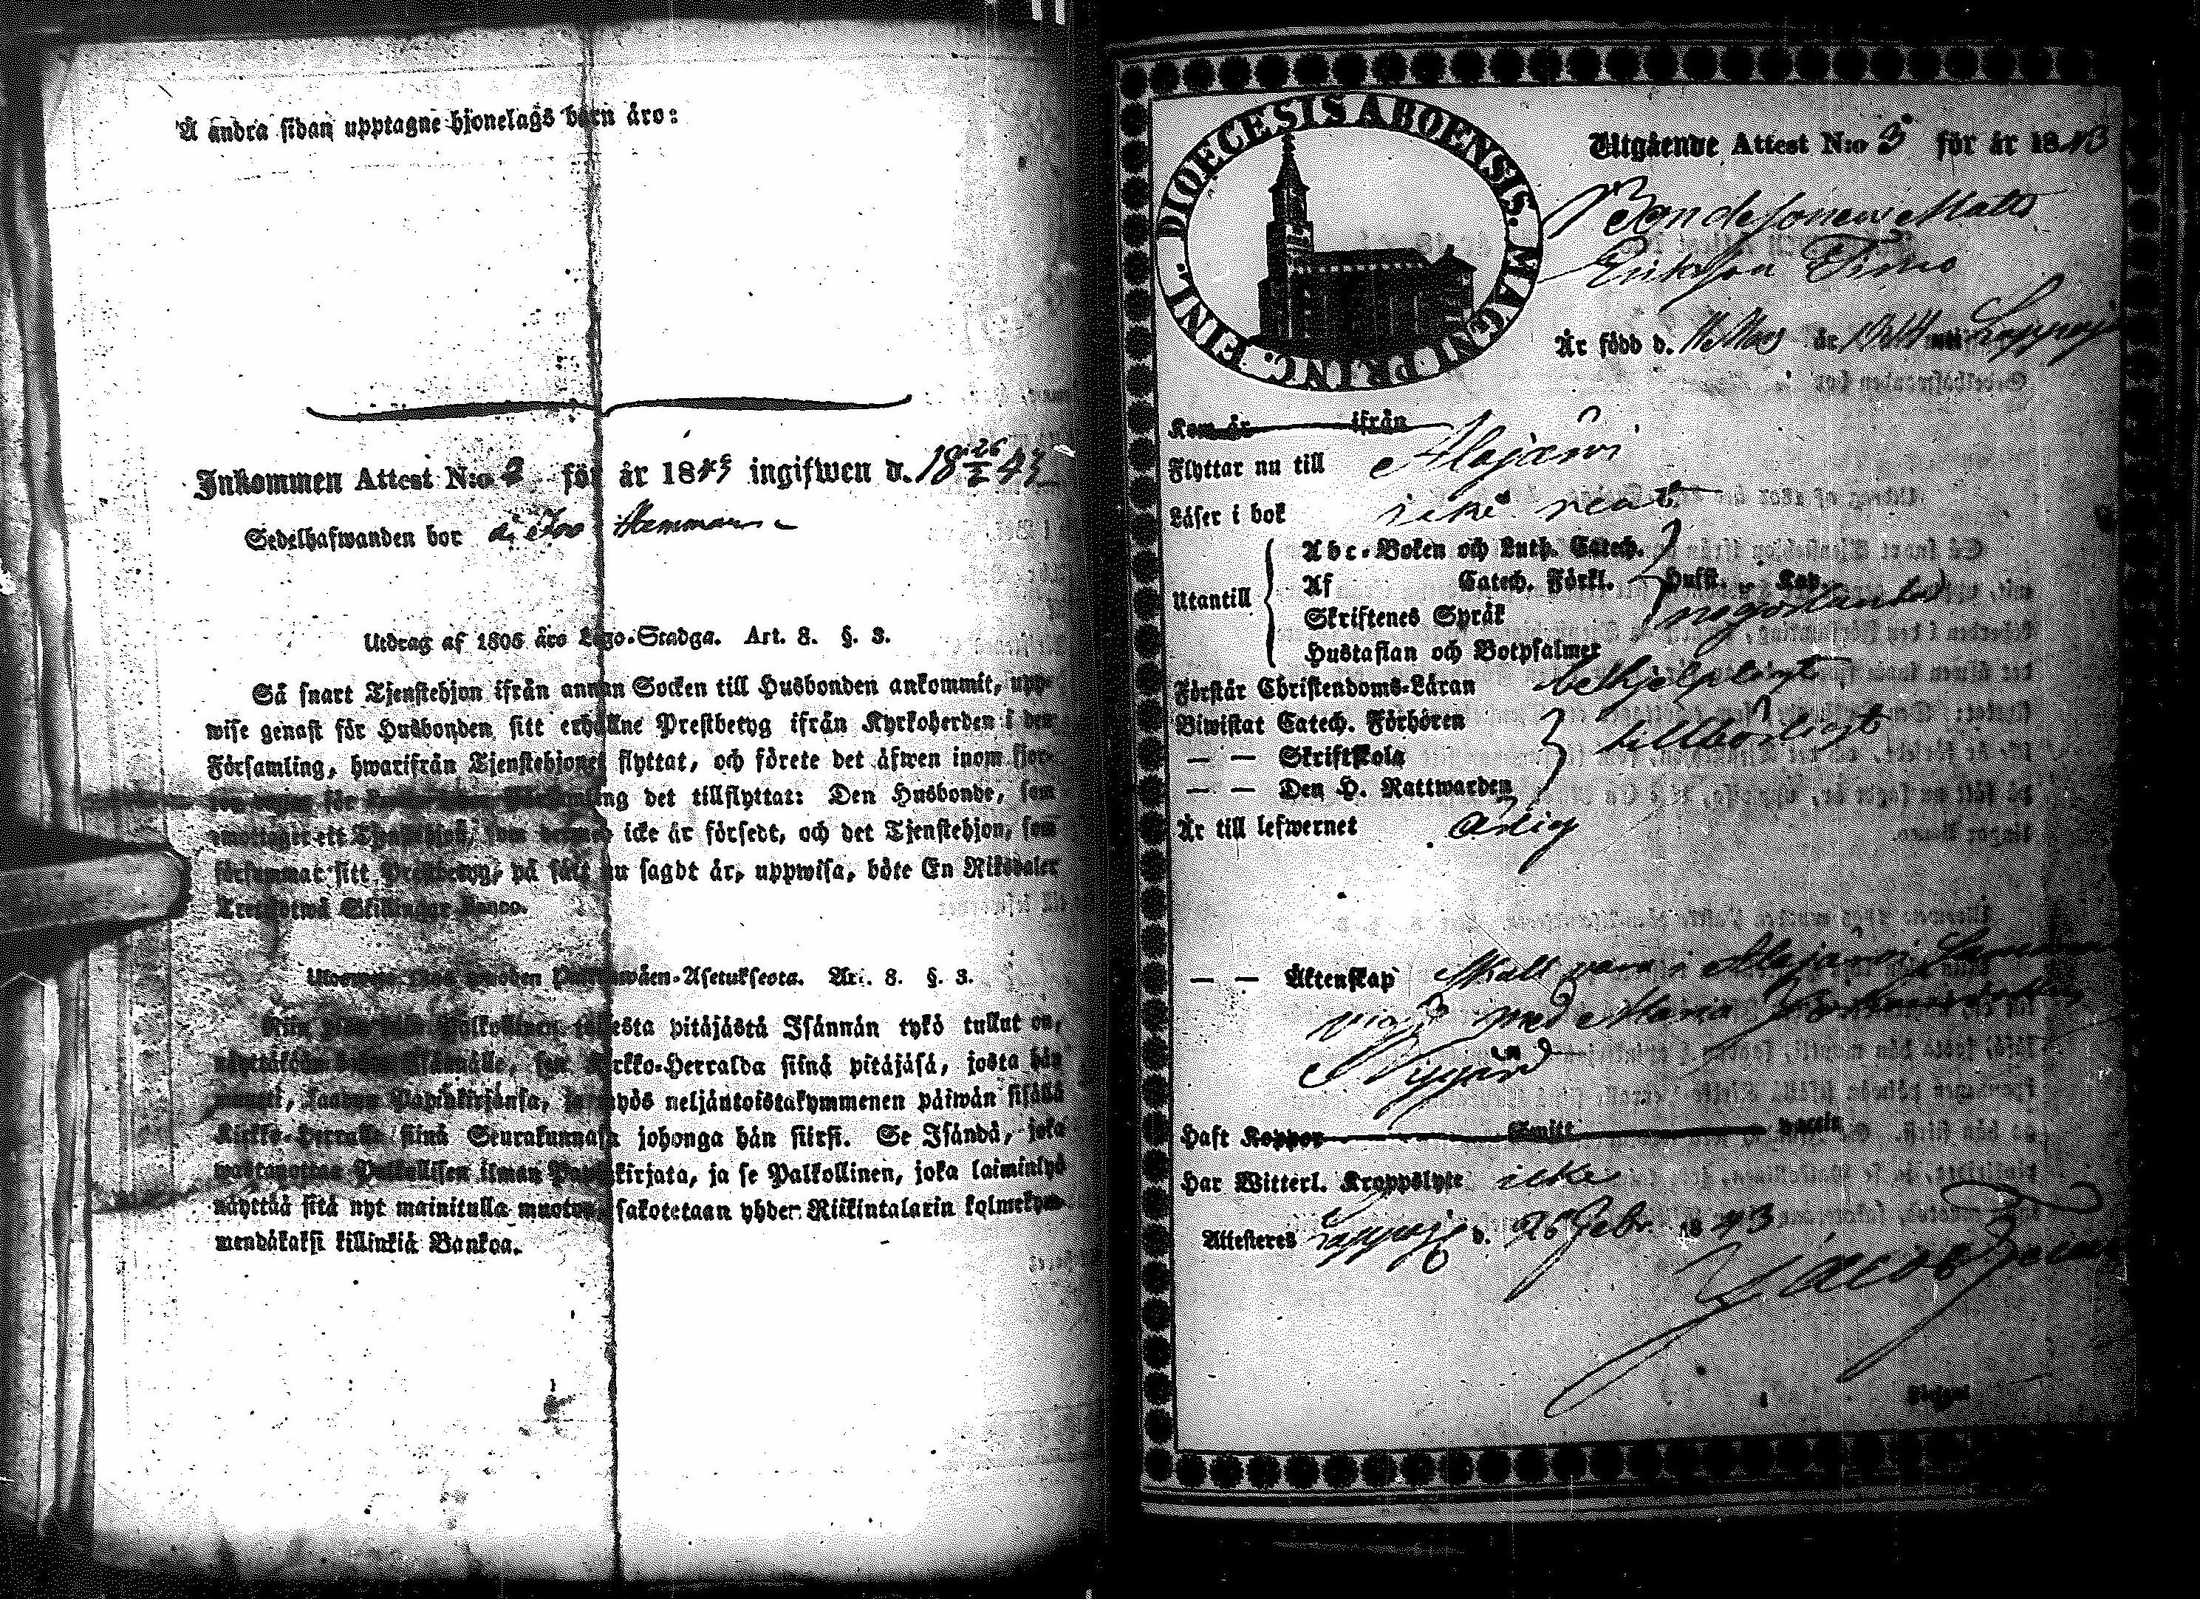 Å andra sidan upptagne hjonelags barn äro:
Inkommen Attest N:o 2 för år 1843 ingifwen d. 18 26/2 43
Sedelhafwanden bor
Utdrag af 1805 års Lego-Stadga. Art. 8. §. 3.
Så snart Tjenstehjon ifrån annan Socken till Husbonden ankommit, upp-
wise genast för Husbonden sitt erhållne Prestbetyg ifrån Kyrkoherden i den
Församling, hwarifrån Tjenstehjonet flyttat, och förete det äfwen inom fjor-
det tillflyttat: Den Husbonde, som
emottager ett Tjenstehjon, som dermed icke är försedt, och det Tjenstehjon, som
försummar sitt Prestbetyg, på sätt nu sagdt är, uppwisa, böte En Riksdaler
Trettiotwå Skillingar Banco.
wuoden Palkkawäen-Asetuksesta. Art. 8. §. 3.
toisesta pitäjästä Isännän tykö tullut on,
Kirkko-Herralda siinä pitäjäsä, josta hän
muutti, saadun Papinkirjansa, ja myös neljäntoistakymmenen päiwän sisällä
Kirkko-Herralle siinä Seurakunnasa johonga hän siirsi. Se Isändä, joka
wastaanottaa Palkollisen ilman Papinkirjata, ja se Palkollinen, joka laiminlyö
näyttää sitä nyt mainitulla muotoa, sakotetaan yhden Riikintalarin kolmekym-
mendäkaksi killinkiä Bankoa.
DIOECESIS ABOENSIS. MAGNI PRINC. FINL.
Utgående Attest N:o 3 för år 1843
Bondesonen Matts
Eriksson Timo
Är född d. 11 Maj år 1824 Lappajä
Kom år ifrån
Flyttar nu till Alajärvi
Läser i bok icke rent
Abc-Boken och Luth. Catech.
Utantill Af Catech. Förkl. Husst. Kap.
Skriftenes Språk någorlunda
Hustaflan och Botpsalmer
Förstår Christendoms-Läran behjelpligt
Biwistat Catech. Förhören
— — Skriftskola tillbörligt
— — Den H. Nattwarden
Är till lefwernet ärlig
— — Äktenskap Skall vara i Alajärvi
vigd med Maria
Nygård
Haft Koppor Smitt
Har Witterl. Kroppslyte icke
Attesteres Lappajä d. 26 Febr. 1843
Jacob